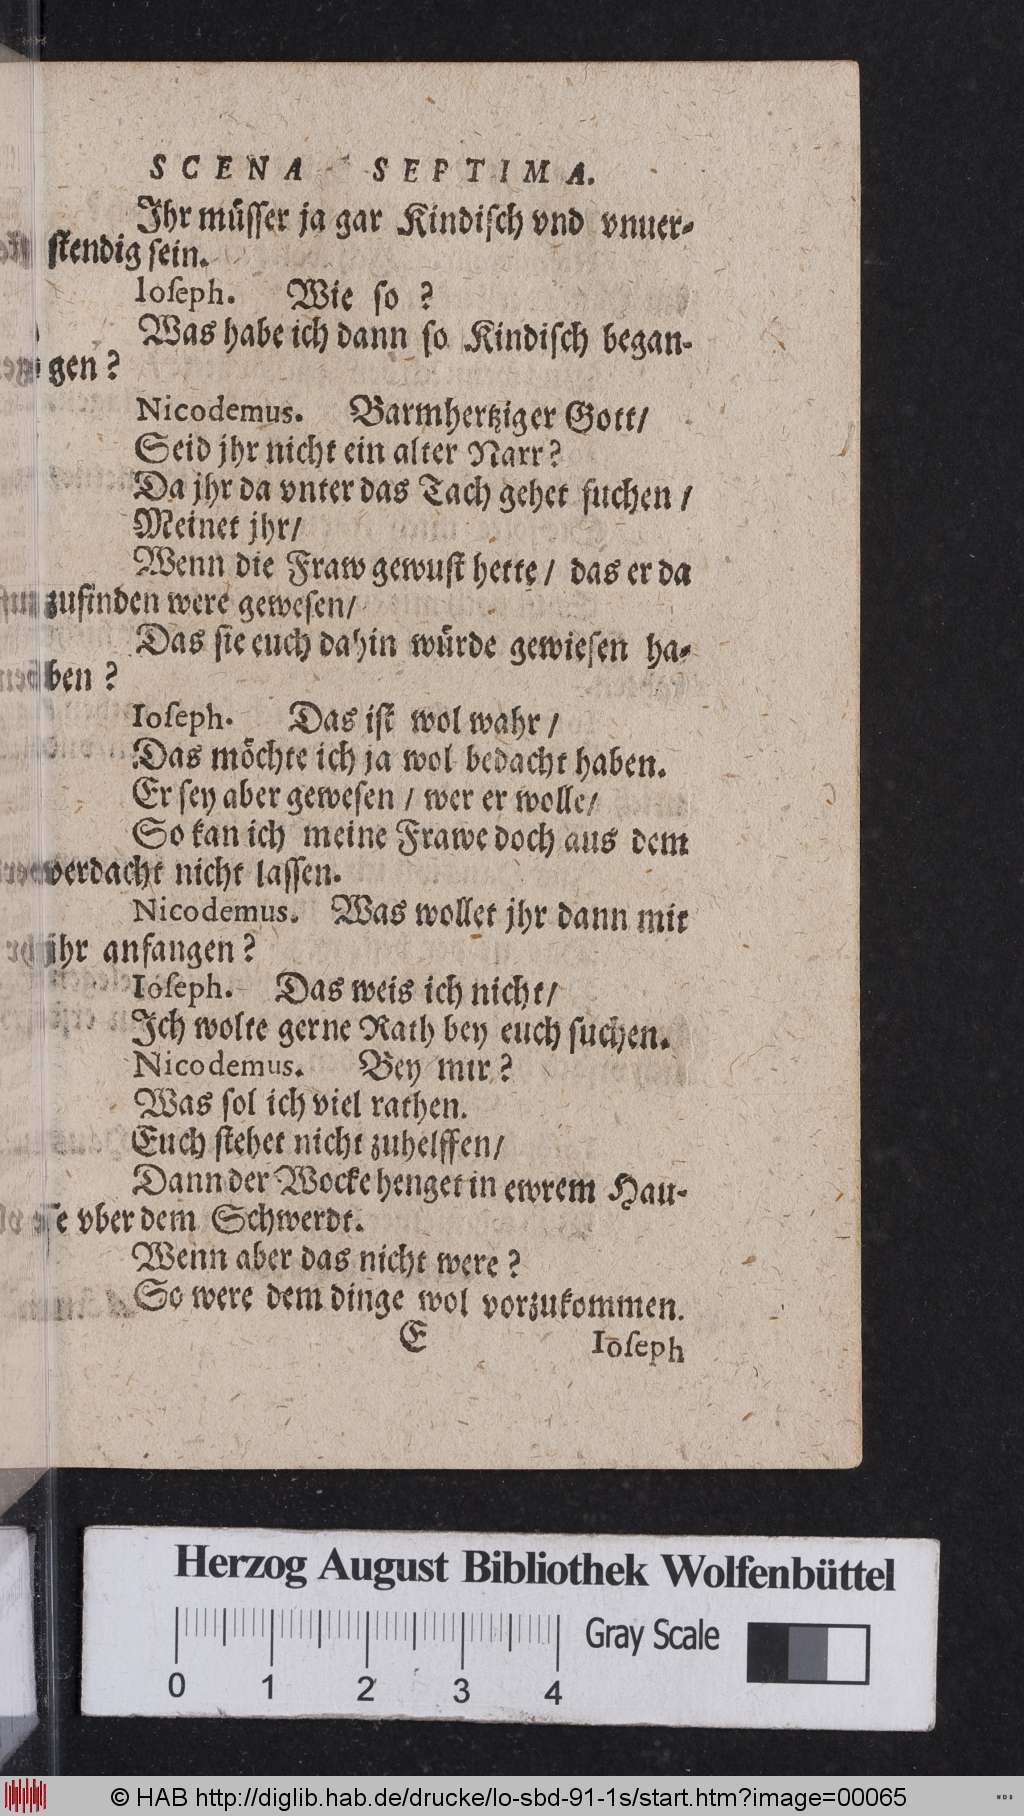 SCENA SEPTIMA.
Ihr müsser ja gar Kindisch vnd vnuer-
stendig sein.
Ioseph. Wie so?
Was habe ich dann so Kindisch began-
gen?
Nicodemus. Barmhertziger Gott/
Seid jhr nicht ein alter Narr?
Da jhr da vnter das Tach gehet suchen/
Meinet jhr/
Wenn die Fraw gewust hette/ das er da
zufinden were gewesen/
Das sie euch dahin würde gewiesen ha-
ben?
Ioseph. Das ist wol wahr/
Das möchte ich ja wol bedacht haben.
Er sey aber gewesen/ wer er wolle/
So kan ich meine Frawe doch aus dem
verdacht nicht lassen.
Nicodemus. Was wollet jhr dann mit
jhr anfangen?
Ioseph. Das weis ich nicht/
Ich wolte gerne Rath bey euch suchen.
Nicodemus. Bey mir?
Was sol ich viel rathen.
Euch stehet nicht zuhelffen/
Dann der Wocke henget in ewrem Hau-
se vber dem Schwerdt.
Wenn aber das nicht were?
So were dem dinge wol vorzukommen.
E Ioseph
Herzog August Bibliothek Wolfenbüttel
Gray Scale
0 1 2 3 4
© HAB http://diglib.hab.de/drucke/lo-sbd-91-1s/start.htm?image=00065